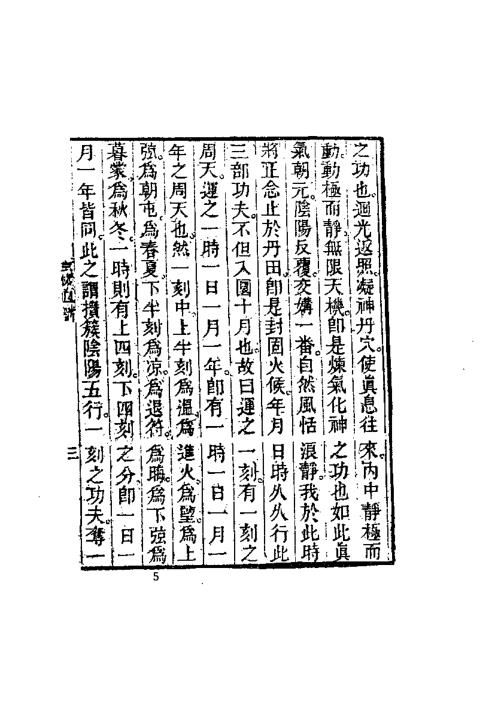 之功也。迴光返照。凝神丹穴。使眞息往來。內中靜極而
動。動極而靜。無限天機。即是煉氣化神之功也。如此眞
氣朝元。陰陽反覆。交媾一番。自然風恬浪靜。我於此時
將正念止於丹田。即是封固火候。年月日時。久久行此
三部功夫。不但入圜十月也。故曰運之一刻。有一刻之
周天。運之一時一日一月一年。即有一時一日一月一
年之周天也。然一刻中。上半刻爲溫。爲進火。爲望。爲上
弦。爲朝屯。爲春夏。下半刻爲凉。爲退符。爲晦。爲下弦。爲
暮蒙。爲秋冬。一時則有上四刻。下四刻之分。即一日一
月一年皆同。此之謂攢簇陰陽五行。一刻之功夫。奪一
三
5